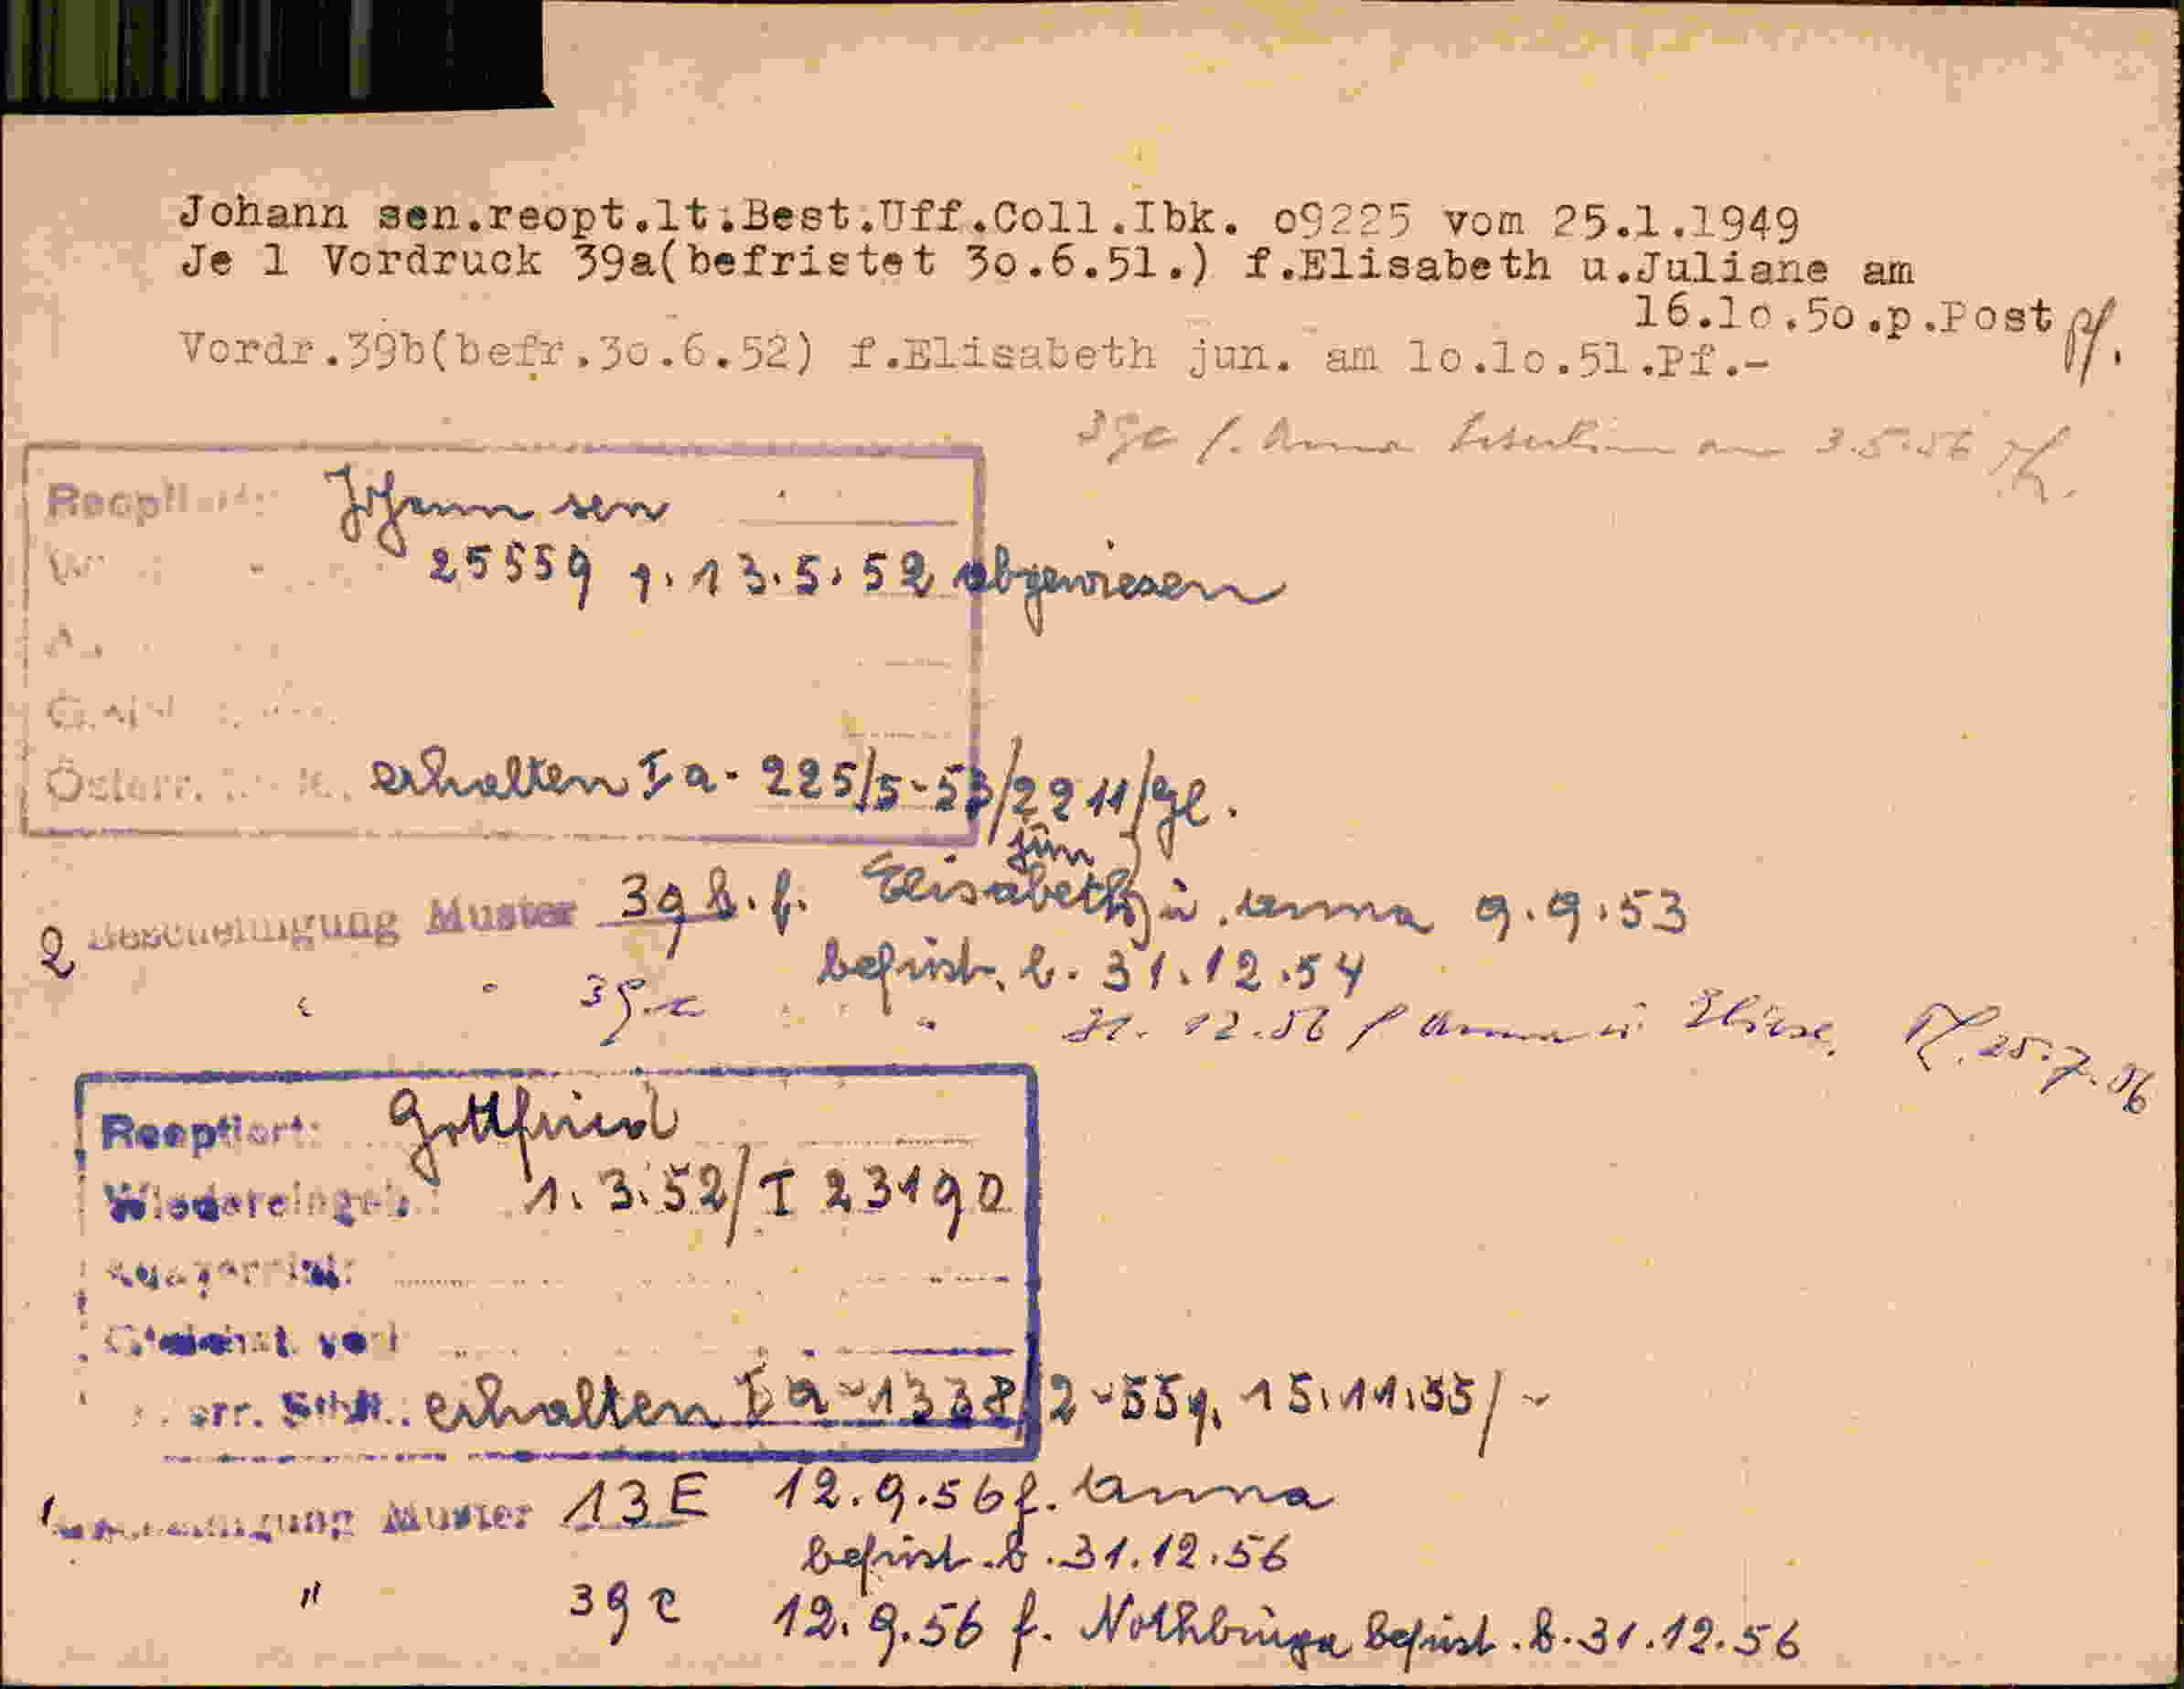 Johann sen.reopt.lt.Best.Uff.Coll.Ibk. o9225 vom 25.1.1949
Je 1 Vordruck 39a(befristet 3o.6.51.) f.Elisabeth u.Juliane am
16.1o.5o.p.Post Pf.
Vordr.39b(befr.3o.6.52) f.Elisabeth jun. am 1o.1o.51.Pf.-
39c f. Anna am 3.5.56 Pf.
Reoptiert: Johann sen
25559 v. 13.5.52 abgewiesen
Österr. erhalten Ia- 225/5-53/2211/Gl.
jun
2 Bescheinigung Muster 39 b. f. Elisabeth u. Anna 9.9.53
befrist. b. 31.12.54
" " 39.c " 31.12.56 f Anna u Pf. 25.7.56
Reoptiert: Gottfried
Wiedereingeb.: 1.3.52/I 23190
Ausgereist:
Gleichst. verl
Österr. Stb.: erhalten Ia-1338/2-55 v. 15.11.55/-
1 Bescheinigung Muster 13 E 12.9.56 f. Anna
befrist. b. 31.12.56
" 39 c 12.9.56 f. Nothburga befrist. b. 31.12.56